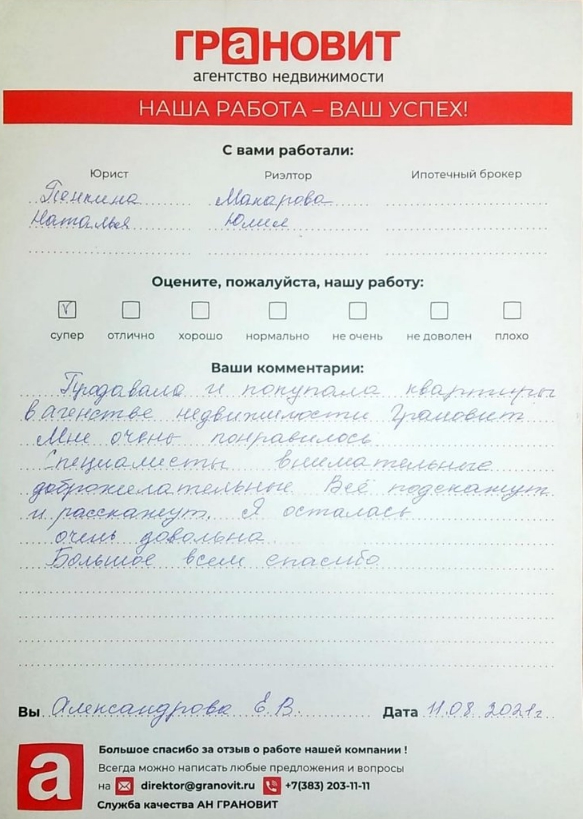 ГРаНОВИТ
агентство недвижимости
НАША РАБОТА – ВАШ УСПЕХ!
С вами работали:
Юрист Риэлтор Ипотечный брокер
Пенкина Макарова
Наталья Юлия
Оцените, пожалуйста, нашу работу:
супер отлично хорошо нормально не очень не доволен плохо
Ваши комментарии:
Продавала и покупала квартиры
в агенстве недвижимости Грановит
Мне очень понравилось
Специалисты внимательные
доброжелательные Всё подскажут
и расскажут. Я осталась
очень довольна
Большое всем спасибо
Вы Александрова Е.В. Дата 11.08.2021г
а
Большое спасибо за отзыв о работе нашей компании !
Всегда можно написать любые предложения и вопросы
на direktor@granovit.ru +7(383) 203-11-11
Служба качества АН ГРАНОВИТ